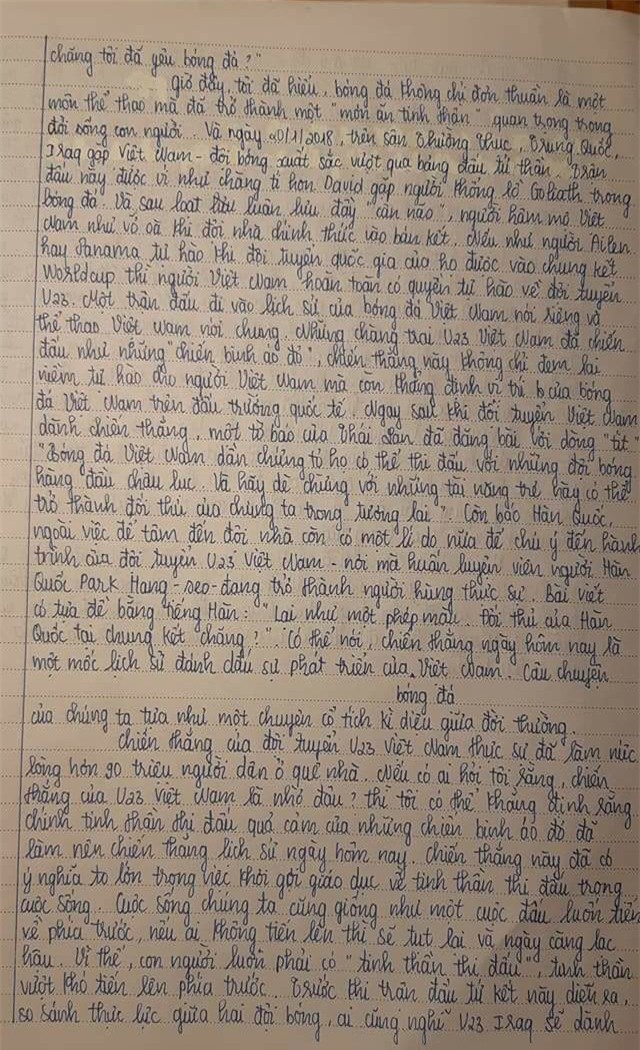 chăng tôi đã yêu bóng đá?"
giờ đây, tôi đã hiểu, bóng đá không chỉ đơn thuần là một
môn thể thao mà đã trở thành một "món ăn tinh thần" quan trọng trong
đời sống con người. Và ngày 20/1/2018, trên sân Thường Thục, Trung Quốc,
Iraq gặp Việt Nam - đội bóng xuất sắc vượt qua bảng đấu tử thần. Trận
đấu này được ví như chàng tí hon David gặp người khổng lồ Goliath trong
bóng đá. Và sau loạt sút luân lưu đầy "cân não", người hâm mộ Việt
Nam như vỡ oà khi đội nhà chính thức vào bán kết. Nếu như người Ailen
hay Panama tự hào khi đội tuyển quốc gia của họ được vào chung kết
Worldcup thì người Việt Nam hoàn toàn có quyền tự hào về đội tuyển
U23. Một trận đấu đi vào lịch sử của bóng đá Việt Nam nói riêng và
thể thao Việt Nam nói chung. Những chàng trai U23 Việt Nam đã chiến
đấu như những "chiến binh áo đỏ", chiến thắng này không chỉ đem lại
niềm tự hào cho người Việt Nam mà còn khẳng định vị trí của bóng
đá Việt Nam trên đấu trường quốc tế. Ngay sau khi đội tuyển Việt Nam
dành chiến thắng, một tờ báo của Thái Lan đã đăng bài với dòng "tít"
"Bóng đá Việt Nam dần chứng tỏ họ có thể thi đấu với những đội bóng
hàng đầu châu lục. Và hãy dè chừng với những tài năng trẻ này có thể
trở thành đối thủ của chúng ta trong tương lai". Còn báo Hàn Quốc,
ngoài việc để tâm đến đội nhà còn có một lí do nữa để chú ý đến hành
trình của đội tuyển U23 Việt Nam - nơi mà huấn luyện viên người Hàn
Quốc Park Hang-seo - đang trở thành người hùng thực sự. Bài viết
có tựa đề bằng tiếng Hàn: "Lại như một phép màu. Đối thủ của Hàn
Quốc tại chung kết chăng?". Có thể nói, chiến thắng ngày hôm nay là
một mốc lịch sử đánh dấu sự phát triển của Việt Nam. Câu chuyện
bóng đá
của chúng ta tựa như một chuyện cổ tích kì diệu giữa đời thường.
chiến thắng của đội tuyển U23 Việt Nam thực sự đã làm nức
lòng hơn 90 triệu người dân ở quê nhà. Nếu có ai hỏi tôi rằng, chiến
thắng của U23 Việt Nam là nhờ đâu? thì tôi có thể khẳng định rằng
chính tinh thần thi đấu quả cảm của những chiến binh áo đỏ đã
làm nên chiến thắng lịch sử ngày hôm nay. Chiến thắng này đã có
ý nghĩa to lớn trong việc khơi gợi giáo dục về tinh thần thi đấu trong
cuộc sống. Cuộc sống chúng ta cũng giống như một cuộc đấu luôn tiến
về phía trước, nếu ai không tiến lên thì sẽ tụt lại và ngày càng lạc
hậu. Vì thế, con người luôn phải có "tinh thần thi đấu", tinh thần
vượt khó tiến lên phía trước. Trước khi trận đấu tứ kết này diễn ra,
so sánh thực lực giữa hai đội bóng, ai cũng nghĩ U23 Iraq sẽ dành